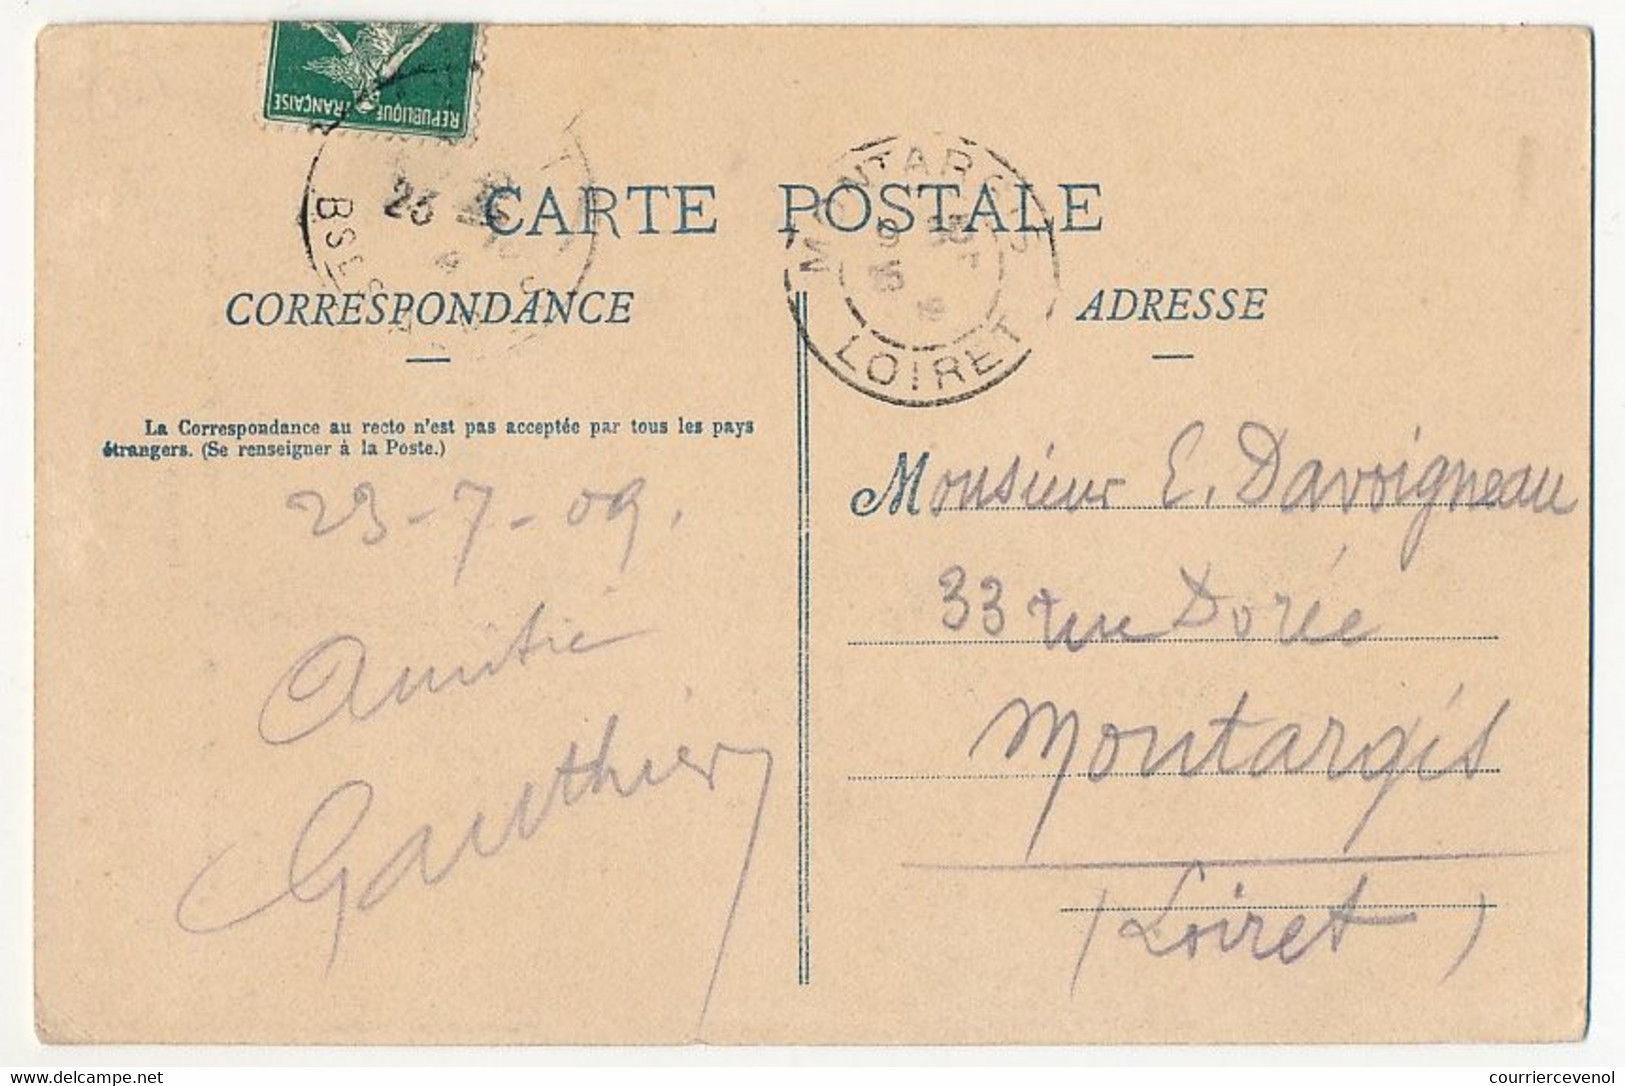 REPUBLIQUE FRANÇAISE
BSES
23
CARTE POSTALE
MONTARGIS
LOIRET
CORRESPONDANCE
ADRESSE
La Correspondance au recto n'est pas acceptée par tous les pays
étrangers. (Se renseigner à la Poste.)
23-7-09.
Amitié
Gauthier
Monsieur E. Davoigneau
33 rue Dorée
Montargis
(Loiret)
https://www.delcampe.net
courriercevenol